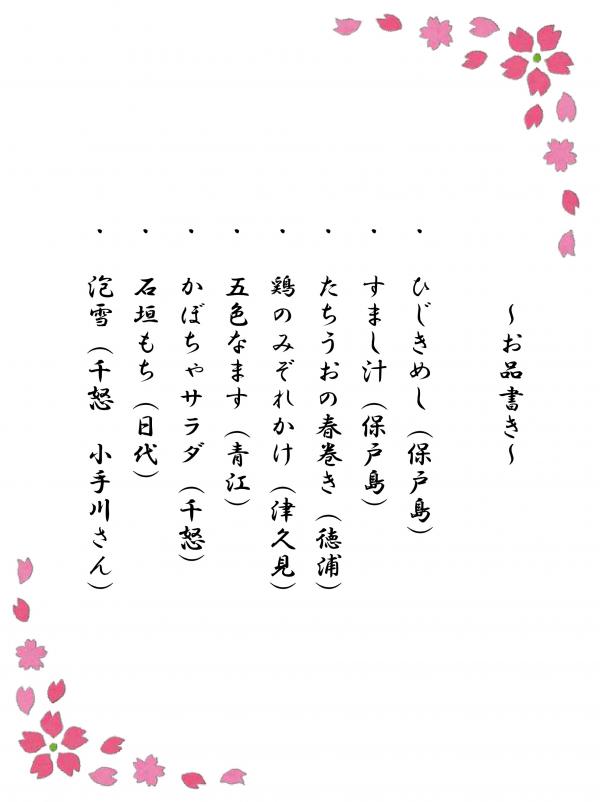 ～お品書き～
・ ひじきめし（保戸島）
・ すまし汁（保戸島）
・ たちうおの春巻き（徳浦）
・ 鶏のみぞれかけ（津久見）
・ 五色なます（青江）
・ かぼちゃサラダ（千怒）
・ 石垣もち（日代）
・ 泡雪（千怒　小手川さん）